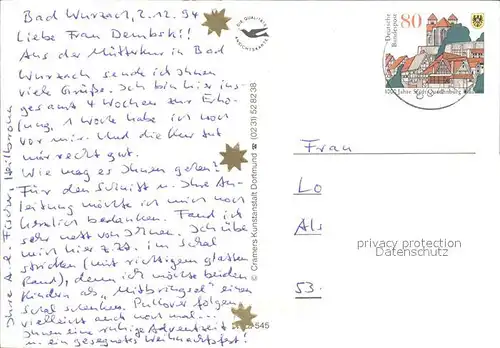 Bad Wurzach, 2.12.94
Liebe Frau Dembski!
Aus der Mütterkur in Bad
Wurzach sende ich Ihnen
viele Grüße. Ich bin hier ins-
gesamt 4 Wochen zur Erho-
lung, 1 Woche habe ich noch
vor mir. Und die Kur tut
mir recht gut.
Wie mag es Ihnen gehen?
Für den Schnitt u. Ihre An-
leitung möchte ich mich noch
herzlich bedanken. Fand ich
sehr nett von Ihnen. Ich übe
mich hier z.Zt. im Schal
stricken (mit richtigem glatten
Rand), denn ich möchte beiden
Kindern als „Mitbringsel" einen
Schal schenken. Pullover folgen
vielleicht auch noch mal...
Ihnen eine ruhige Adventszeit
u. ein gesegnetes Weihnachtsfest!
Ihre A.-R. Fischer, Heilbronn
DIE QUALITÄTS
ANSICHTSKARTE
© Cramers Kunstanstalt Dortmund ☎ (0231) 528238
545
Deutsche
Bundespost
80
1000 Jahre Stadt Quedlinburg
Frau
Lo
Als
53
privacy protection
Datenschutz